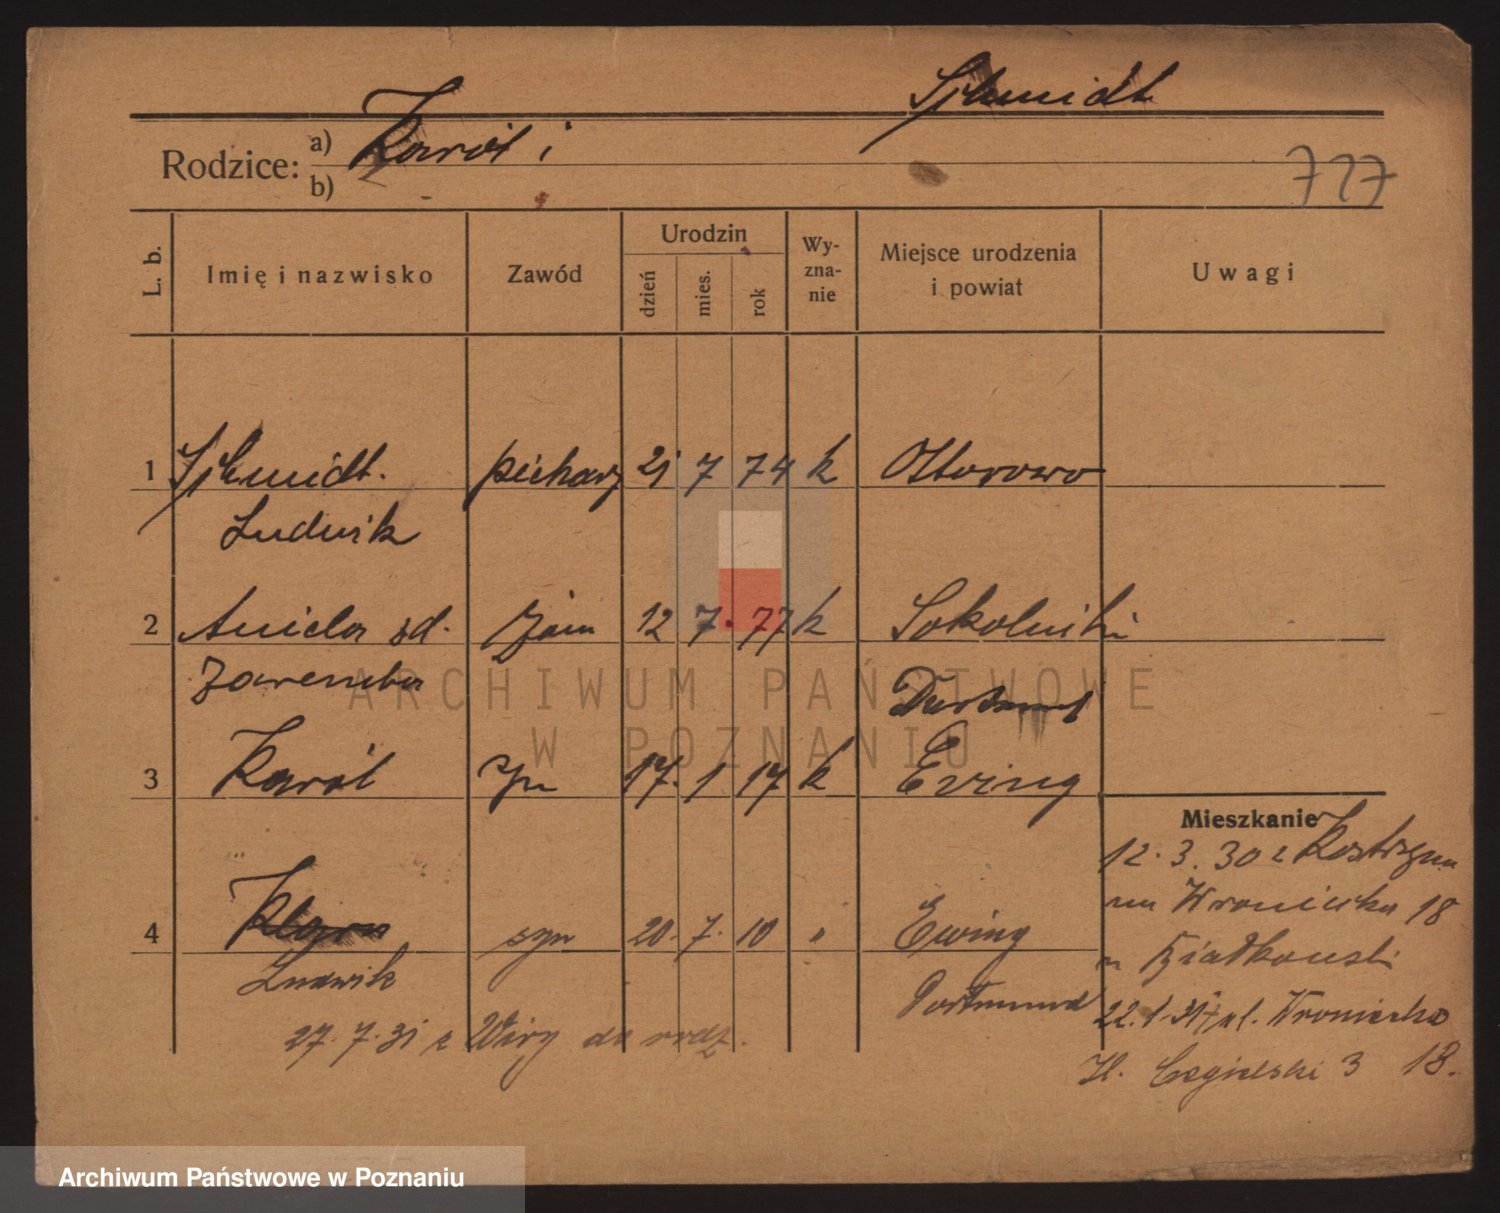 Schmidt
Rodzice: a) Karól i
b)
727
L. b. Imię i nazwisko Zawód Urodzin dzień mies. rok Wyznanie Miejsce urodzenia i powiat Uwagi
1 Schmidt. piekarz 21 7 74 k Ottorowo
Ludwik
2 Aniela zd. żona 12 7. 77 k Sokolniki
Zaremba
Dortmund
3 Karól syn 17. 1 17 k Eving
Mieszkanie
12. 3. 30 z Kostrzyna
na Wroniecka 18
4 syn 20. 7. 10 " Ewing
Ludwik
Dortmund
22. 1. 31 ul. Wroniecka
27. 7. 31 z Wiry do rodz.
H. Cegielski 3 18.
ARCHIWUM PAŃSTWOWE
W POZNANIU
Archiwum Państwowe w Poznaniu